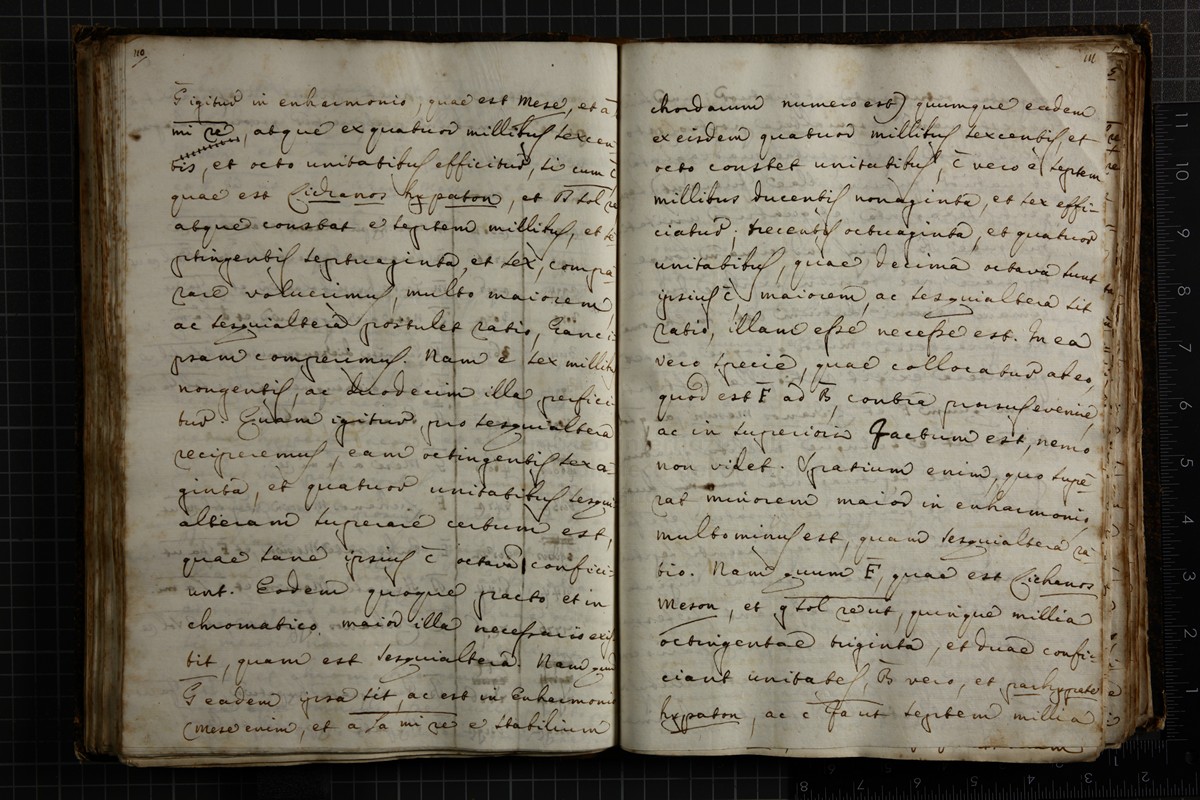 110
G igitur in enharmonio, quae est Mese, et a
mi re, atque ex quatuor millibus sexcen
tis, et octo unitatibus efficitur, si cum c̄
quae est Lichanos hypaton, et B sol re
atque constat e septem millibus, et se
ptingentis septuaginta, et sex, compa
rare voluerimus, multo maiorem
ac sesquialtera postulet ratio, hanc i
psam comperimus. Nam e sex millibus
nongentis, ac duodecim illa perfici
tur. Quam igitur pro sesquialtera
reciperemus, eam octingentis sexa
ginta, et quatuor unitatibus sesqui
alteram superare certum est,
quae sane ipsius c̄ octava confici
unt. Eodem quoque pacto et in
chromatico maior illa necessario exis
tit, quam est sesquialtera. Nam quum
G eadem ipsa sit, ac est in Enharmonio
(mese enim, et a la mi re e stabilium
111
chordarum numero est) quumque eadem
ex eisdem quatuor millibus sexcentis, et
octo constet unitatibus, c̄ vero e septem
millibus ducentis nonaginta, et sex effi-
ciatur; trecentis octuaginta, et quatuor
unitatibus, quae decima octava sunt
ipsius c̄, maiorem, ac sesquialtera sit
ratio, illam esse necesse est. In ea
vero specie, quae collocatur ab eo,
quod est F ad B, contra prorsus evenire,
ac in superiori Factum est, nemo
non videt. Spatium enim, quo supe-
rat minorem maior in enharmonio,
multo minus est, quam sesquialtera ra-
tio. Nam quum F, quae est Lichanos
Meson, et g sol re ut, quinque millia
octingentae triginta, et duae confi-
ciant unitates, B vero, et parhypate
hypaton, ac c fa ut septem millia